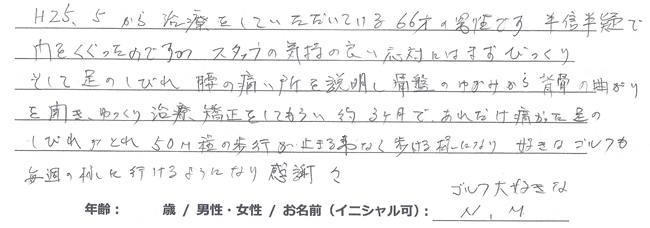 H25.5から治療をしていただいている66才の男性です 半信半疑で
門をくぐったのですが スタッフの気持の良い応対にはまずびっくり
そして足のしびれ 腰の痛い所を説明し骨盤のゆがみから背骨の曲がり
を聞き、ゆっくり治療 矯正をしてもらい約3ヶ月で あれだけ痛かった足の
しびれがとれ 50M程の歩行が止まる事なく歩ける様になり 好きなゴルフも
毎週の様に行けるようになり 感謝々
ゴルフ大好きな
年齢： 歳 / 男性・女性 / お名前（イニシャル可）： N.M